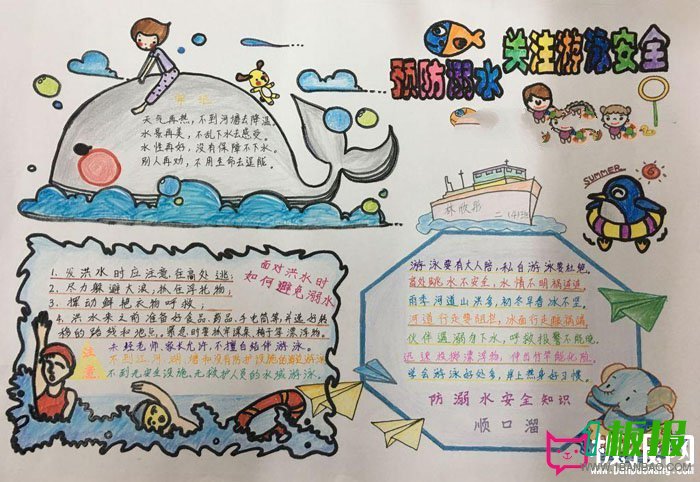 预防溺水 关注游泳安全
天气再热，不到河塘去降温
水景再美，不乱下水去感受。
水性再好，没有保障不下水。
别人再劝，不用生命去逞能。
SUMMER
二（4）班
面对洪水时
如何避免溺水
1. 发洪水时应注意往高处逃；
2. 尽力躲避大浪，抓住浮托物；
3. 摆动鲜艳衣物呼救；
4. 洪水来之前准备好食品、药品、手电筒等，并选好转
移的路线和地点。
注意
未经老师、家长允许，不擅自结伴游泳。
不到江河、湖、塘和没有防护设施
不到无安全设施、无救护人员的水域游泳。
游泳要有大人陪，私自游泳要杜绝。
水不安全，水情不明祸追随。
雨季河道山洪多，初冬早春冰不坚。
河道行走要离岸，冰面行走腿祸端。
伙伴逼溺力下水，呼救报警不能晚。
迅速投掷漂浮物，伸出竹竿能化险。
学会游泳好处多，岸上热身好习惯。
防溺水安全知识
顺口溜
板报
WWW.1BANBAO.COM